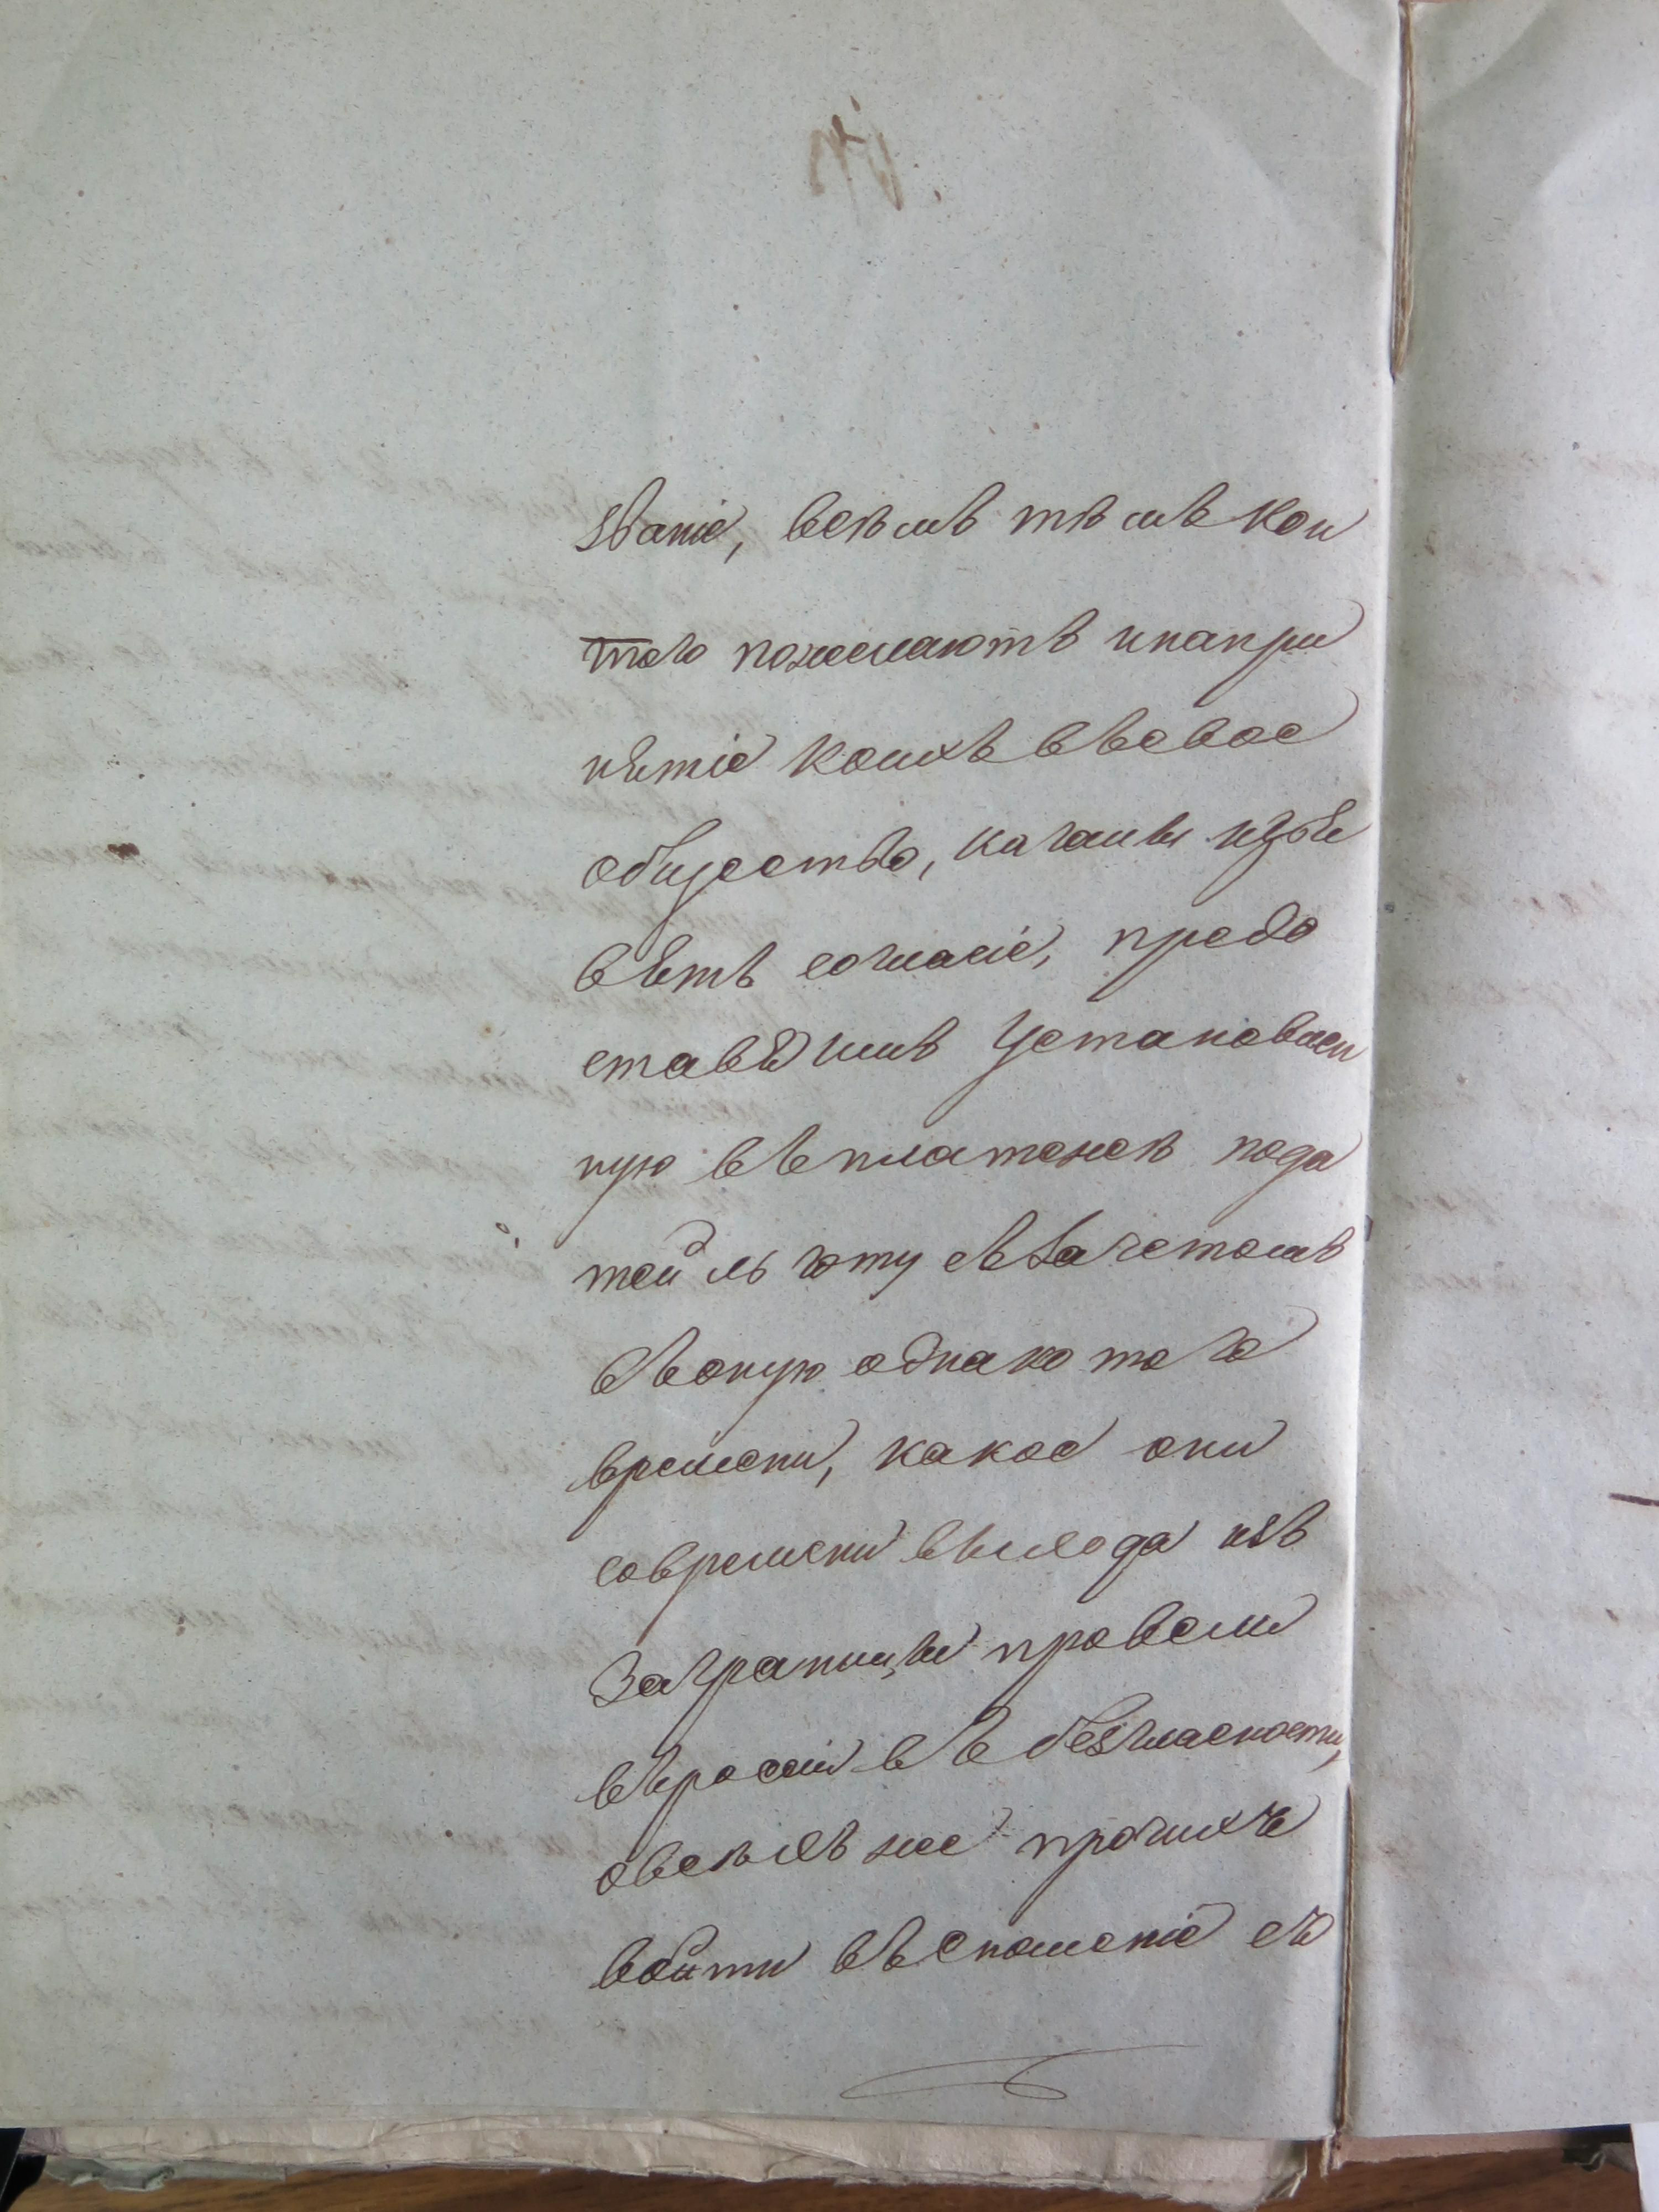 званіе, всѣмъ тѣмъ кои
того пожелаютъ инапри
нятіе коихъ въсвое
общество, кагалы изъя
вятъ согласіе, предо
ставя имъ установлен
ную въ платежѣ пода
тей льготу съ зачетомъ
въ оную однако того
времени, какое они
современи выхода изъ
заграницы провели
въросіи въ безгласности,
овсѣхъ же прочихъ
войти въ сношеніе съ